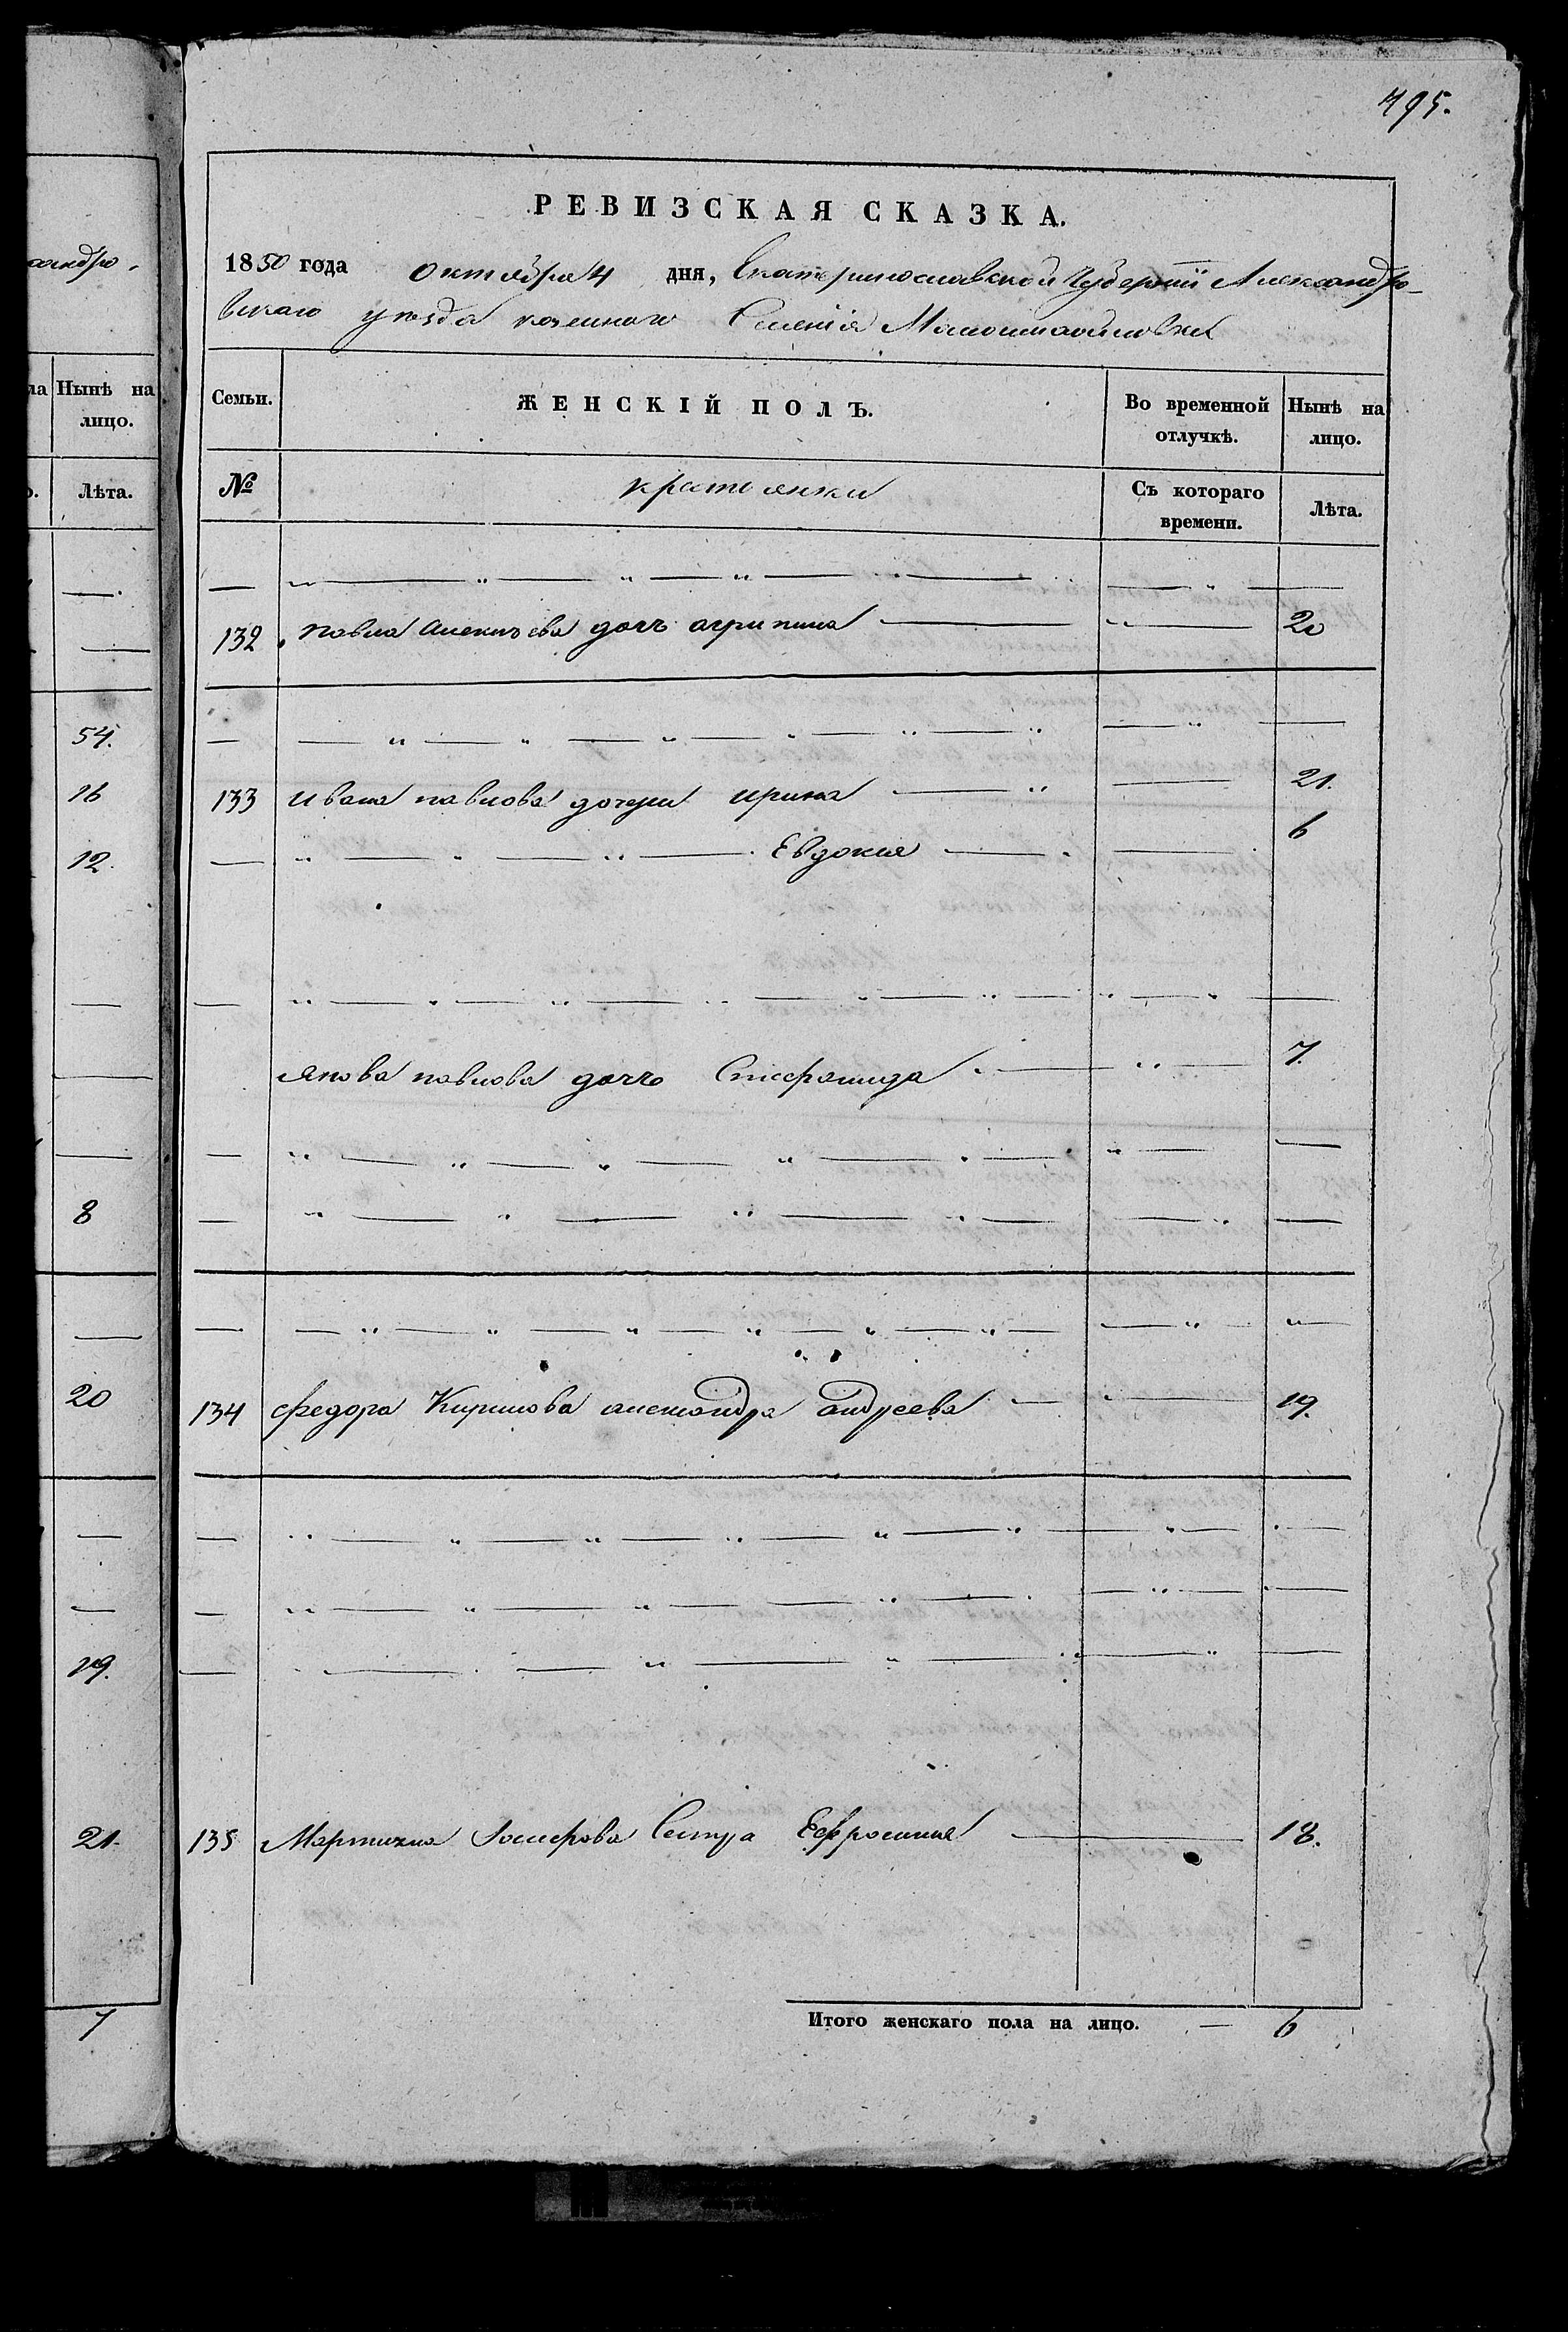 495.
РЕВИЗСКАЯ СКАЗКА.
1850 года октября 4 дня, Екатеринославской Губернии Александро-
вскаго уезда казеннаго Селения Маломихайловки
андро-
ла Нынѣ на лицо.
Лѣта.
54.
16
12.
8
20
19.
21.
7
Семьи. ЖЕНСКІЙ ПОЛЪ. Во временной отлучкѣ. Нынѣ на лицо.
№ крестьянки Съ котораго времени. Лѣта.
132 Павла Алексѣева дочь агрипина 20
133 Ивана павлова дочери ирина 21.
Евдокия 6
якова павлова дочь 7.
134 Федора Кирилова александра андреева 19.
135 Мартина сестра Ефросиния 18.
Итого женскаго пола на лицо. — 6